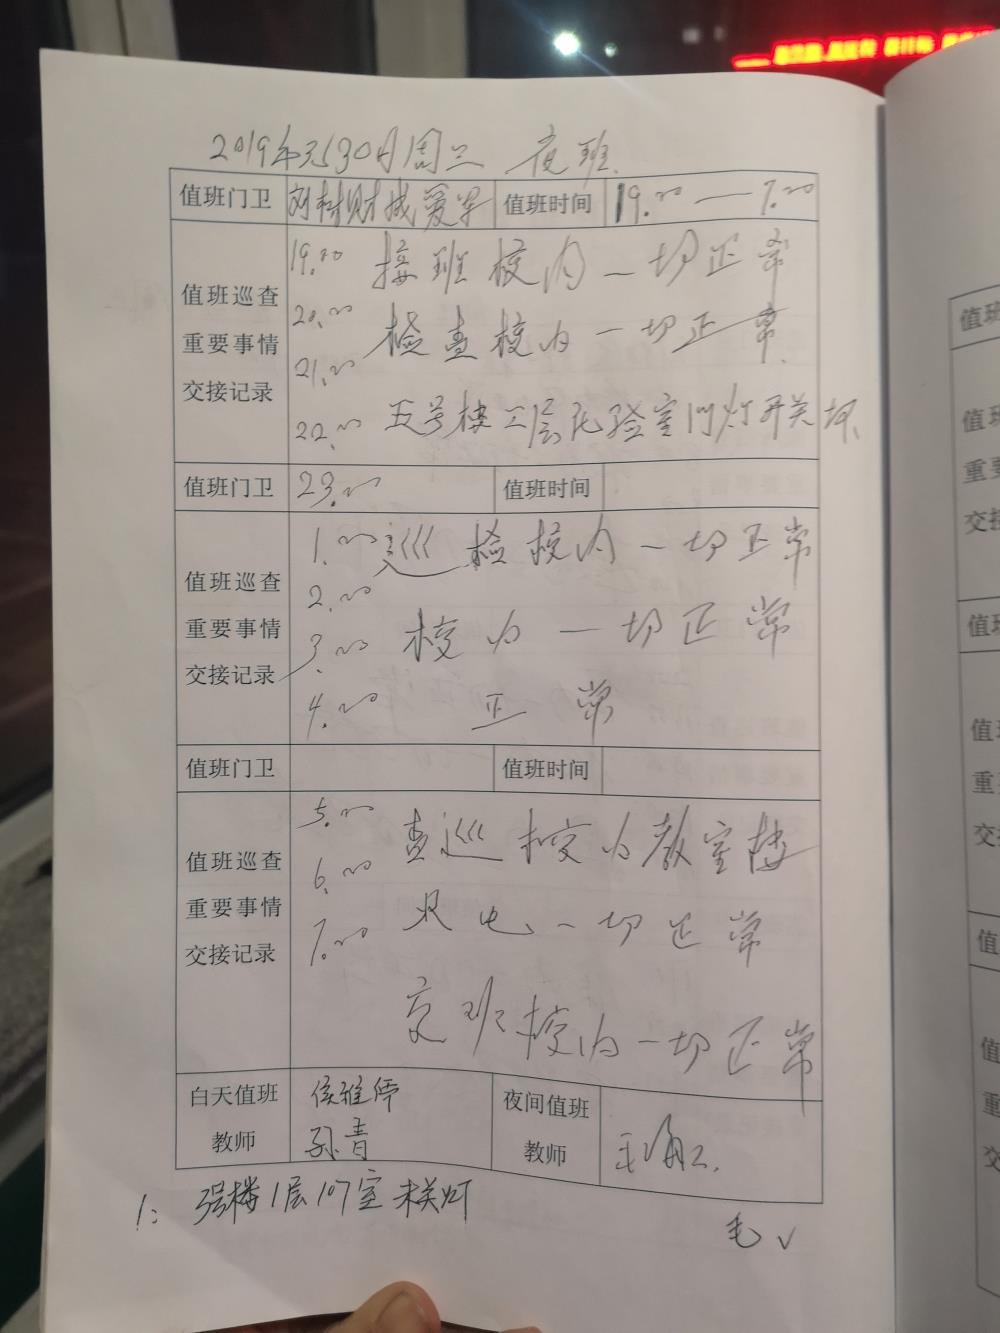 2019年 30日周三 夜班
值班门卫 值班时间 19.00——7.00
值班巡查
重要事情
交接记录
19.00 接班校内一切正常
20.00 检查校内一切正常
21.00
22.00 五号楼二层 验室门灯开关坏
值班门卫 23.00 值班时间
值班巡查
重要事情
交接记录
1.00 巡检校内一切正常
2.00
3.00 校内一切正常
4.00 正常
值班门卫 值班时间
值班巡查
重要事情
交接记录
5.00 查巡校内教室楼
6.00 电一切正常
7.00
交班校内一切正常
白天值班
教师
侯维
孙青
夜间值班
教师
1: 楼1层107室未关灯
毛√
值班
重要
交接
值班
值班
重要
交接
值班
值班
重要
交接